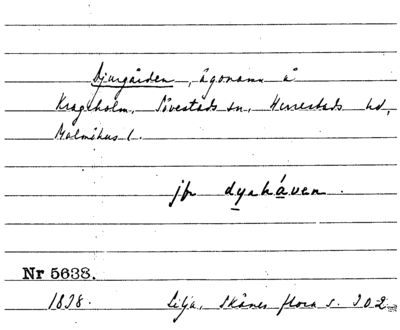 Djurgården, ägonamn å
Krageholm, Sövestads sn, Herrestads hd,
Malmöhus l.
jfr dyrháven.
Nr 5638.
1838. Lilja, Skånes flora s. 302